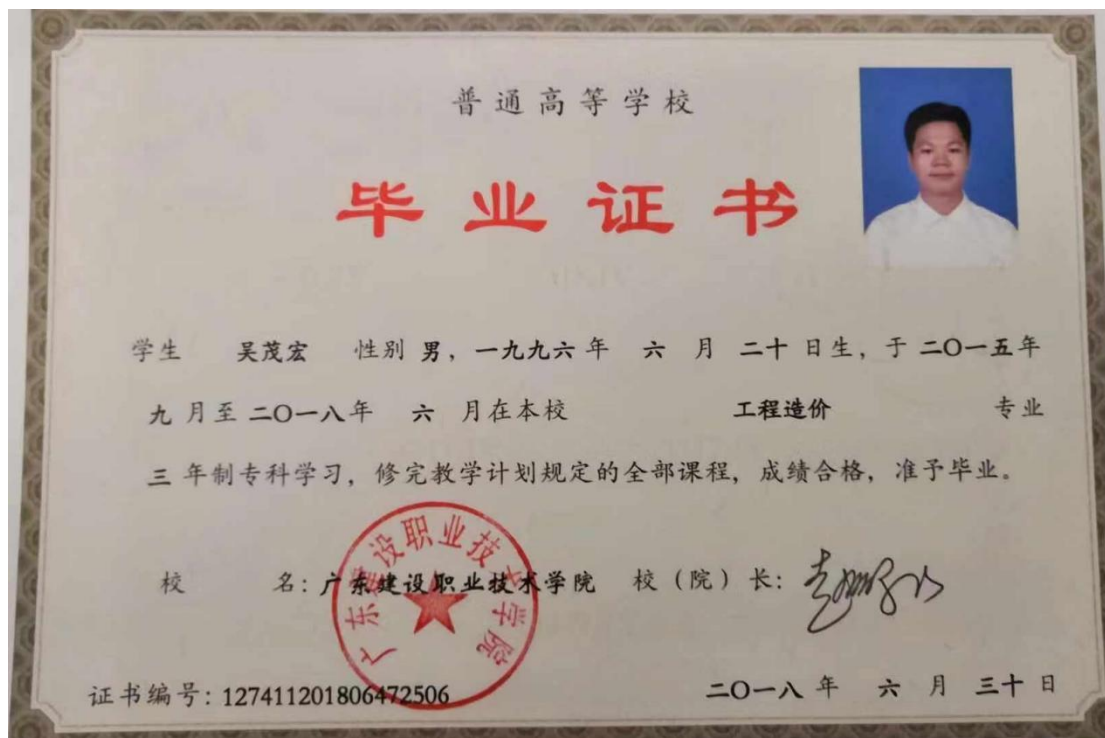 普通高等学校
毕业证书
学生 吴茂宏 性别 男，一九九六年 六 月 二十 日生，于 二〇一五年
九 月至 二〇一八年 六 月在本校 工程造价 专业
三 年制专科学习，修完教学计划规定的全部课程，成绩合格，准予毕业。
广东建设职业技术学院
校 名：广东建设职业技术学院 校（院）长：
证书编号：127411201806472506 二〇一八 年 六 月 三十 日